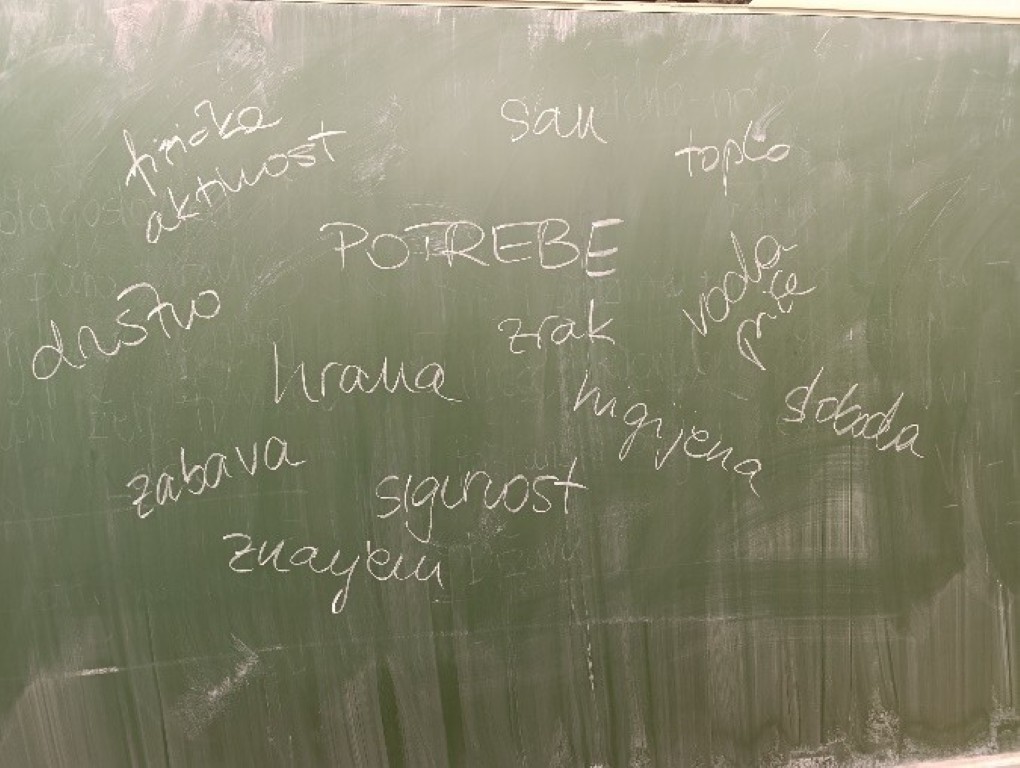 fizička
aktivnost
san
toplo
POTREBE
voda
piće
društvo
zrak
hrana
higijena
sloboda
zabava
sigurnost
znojenju